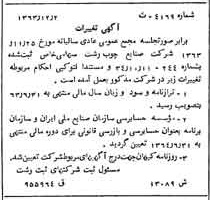 شماره ۴۱۶۹-ت ۱۳۶۳/۱۲/۲
آگهی تغییرات
برابر صورتجلسه مجمع عمومی عادی سالیانه مورخ ۲۵ر۱۱ر
۱۳۶۳ شرکت صنایع چوب رشت سهامی خاص ثبت شده
بشماره ۲۴۴ - ۱۱ر۱۰ر۳۴ و مستندا لتوکپی احکام مربوطه
تغییرات زیر در شرکت مذکور بعمل آمده است.
۱- ترازنامه و سود و زیان سال مالی منتهی به ۶۳/۶/۳۱
بتصویب رسید.
۲- موسسه حسابرسی سازمان صنایع ملی ایران و سازمان
برنامه بعنوان حسابرسی و بازرسی قانونی برای دوره مالی منتهی
به ۱۳۶۴/۶/۳۱ تعیین گردید
۳- روزنامه کیهان جهت درج آگهی‌های مربوط شرکت تعیین شد.
مسئول ثبت شرکتهای ثبت رشت
ش ۱۳۰۸۹ ق ۹۵۵۹۶۴